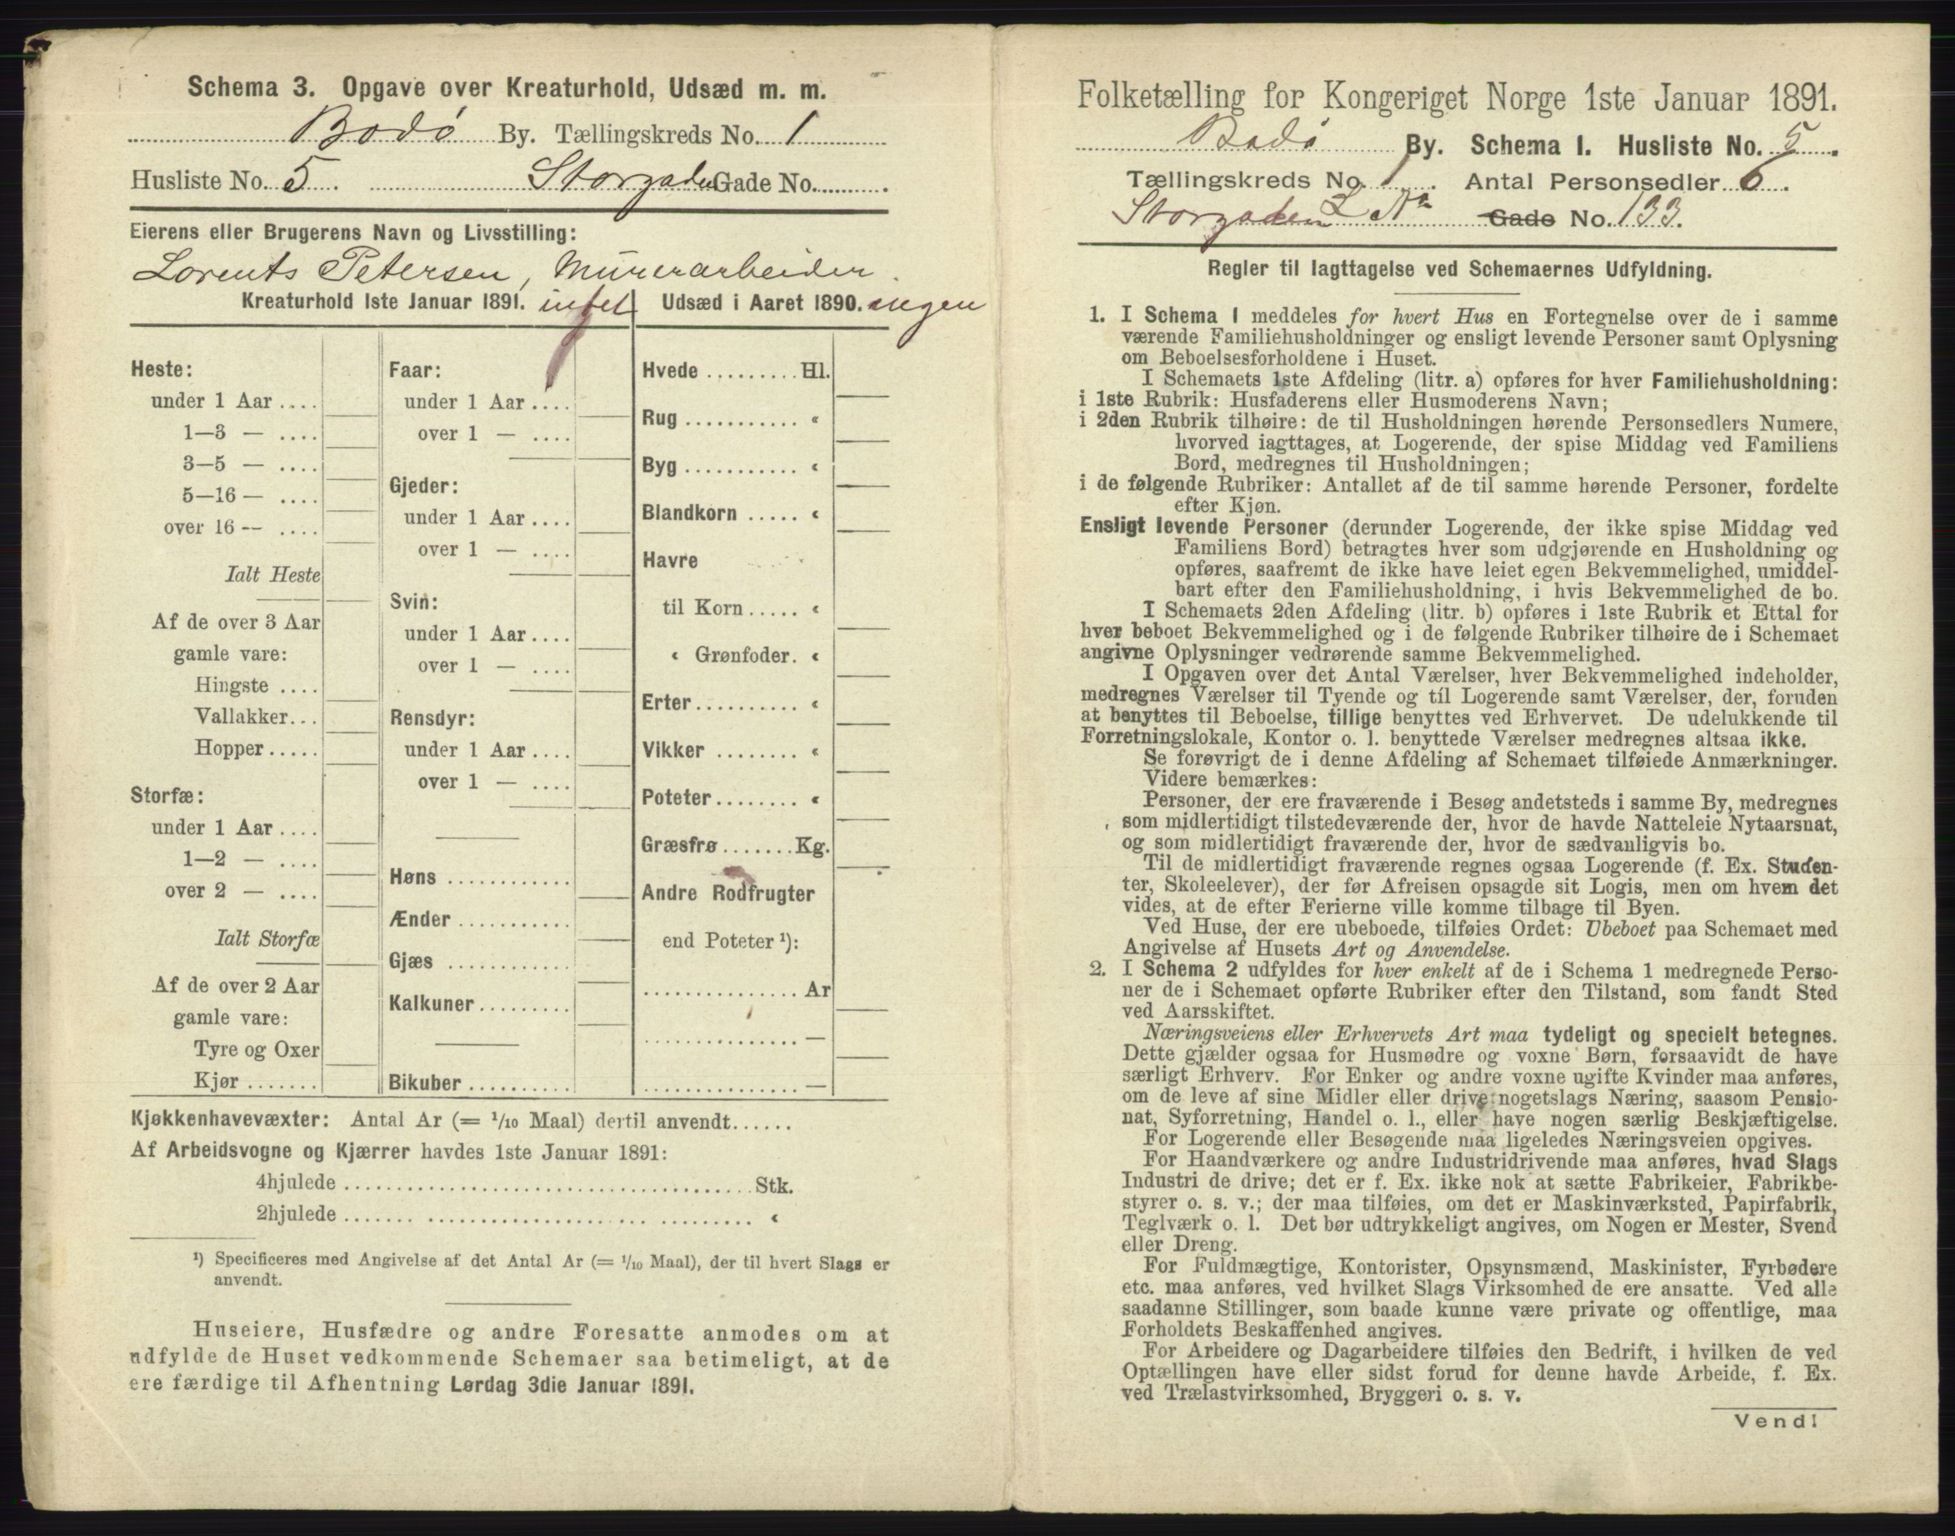 Schema 3. Opgave over Kreaturhold, Udsæd m. m.
Bodö By. Tællingskreds No. 1
Husliste No. 5. Storgaden Gade No.
Eierens eller Brugerens Navn og Livsstilling:
Lorents Petersen, Murerarbeider.
Kreaturhold 1ste Januar 1891. intet
Heste:
under 1 Aar ....
1—3 — ....
3—5 — ....
5—16 — ....
over 16 -- ....
Ialt Heste
Af de over 3 Aar
gamle vare:
Hingste ....
Vallakker...
Hopper .....
Storfæ:
under 1 Aar ....
1—2 — ....
over 2 — ....
Ialt Storfæ
Af de over 2 Aar
gamle vare:
Tyre og Oxer
Kjør .......
Faar:
under 1 Aar ....
over 1 — ....
Gjeder:
under 1 Aar ....
over 1 — ....
Svin:
under 1 Aar ....
over 1 — ....
Rensdyr:
under 1 Aar ....
over 1 — ....
Høns ............
Ænder ...........
Gjæs ............
Kalkuner .........
Bikuber ..........
Udsæd i Aaret 1890. ingen
Hvede ......... Hl.
Rug ........... «
Byg ........... «
Blandkorn ..... «
Havre
til Korn ..... «
« Grønfoder. «
Erter .......... «
Vikker ......... «
Poteter ........ «
Græsfrø ....... Kg.
Andre Rodfrugter
end Poteter ¹):
............... Ar
............... —
............... —
Kjøkkenhavevæxter: Antal Ar (= 1/10 Maal) dertil anvendt......
Af Arbeidsvogne og Kjærrer havdes 1ste Januar 1891:
4hjulede ....................................... Stk.
2hjulede ....................................... «
¹) Specificeres med Angivelse af det Antal Ar (= 1/10 Maal), der til hvert Slags er
anvendt.
Huseiere, Husfædre og andre Foresatte anmodes om at
udfylde de Huset vedkommende Schemaer saa betimeligt, at de
ere færdige til Afhentning Lørdag 3die Januar 1891.
Folketælling for Kongeriget Norge 1ste Januar 1891.
Bodö By. Schema I. Husliste No. 5.
Tællingskreds No. 1. Antal Personsedler 6.
Storgaden L Nr Gade No. 133.
Regler til Iagttagelse ved Schemaernes Udfyldning.
1. I Schema I meddeles for hvert Hus en Fortegnelse over de i samme
værende Familiehusholdninger og ensligt levende Personer samt Oplysning
om Beboelsesforholdene i Huset.
I Schemaets 1ste Afdeling (litr. a) opføres for hver Familiehusholdning:
i 1ste Rubrik: Husfaderens eller Husmoderens Navn;
i 2den Rubrik tilhøire: de til Husholdningen hørende Personsedlers Numere,
hvorved iagttages, at Logerende, der spise Middag ved Familiens
Bord, medregnes til Husholdningen;
i de følgende Rubriker: Antallet af de til samme hørende Personer, fordelte
efter Kjøn.
Ensligt levende Personer (derunder Logerende, der ikke spise Middag ved
Familiens Bord) betragtes hver som udgjørende en Husholdning og
opføres, saafremt de ikke have leiet egen Bekvemmelighed, umiddel-
bart efter den Familiehusholdning, i hvis Bekvemmelighed de bo.
I Schemaets 2den Afdeling (litr. b) opføres i 1ste Rubrik et Ettal for
hver beboet Bekvemmelighed og i de følgende Rubriker tilhøire de i Schemaet
angivne Oplysninger vedrørende samme Bekvemmelighed.
I Opgaven over det Antal Værelser, hver Bekvemmelighed indeholder,
medregnes Værelser til Tyende og til Logerende samt Værelser, der, foruden
at benyttes til Beboelse, tillige benyttes ved Erhvervet. De udelukkende til
Forretningslokale, Kontor o. l. benyttede Værelser medregnes altsaa ikke.
Se forøvrigt de i denne Afdeling af Schemaet tilføiede Anmærkninger.
Videre bemærkes:
Personer, der ere fraværende i Besøg andetsteds i samme By, medregnes
som midlertidigt tilstedeværende der, hvor de havde Natteleie Nytaarsnat,
og som midlertidigt fraværende der, hvor de sædvanligvis bo.
Til de midlertidigt fraværende regnes ogsaa Logerende (f. Ex. Studen-
ter, Skoleelever), der før Afreisen opsagde sit Logis, men om hvem det
vides, at de efter Ferierne ville komme tilbage til Byen.
Ved Huse, der ere ubeboede, tilføies Ordet: Ubeboet paa Schemaet med
Angivelse af Husets Art og Anvendelse.
2. I Schema 2 udfyldes for hver enkelt af de i Schema 1 medregnede Perso-
ner de i Schemaet opførte Rubriker efter den Tilstand, som fandt Sted
ved Aarsskiftet.
Næringsveiens eller Erhvervets Art maa tydeligt og specielt betegnes.
Dette gjælder ogsaa for Husmødre og voxne Børn, forsaavidt de have
særligt Erhverv. For Enker og andre voxne ugifte Kvinder maa anføres,
om de leve af sine Midler eller drive nogetslags Næring, saasom Pensio-
nat, Syforretning, Handel o. l., eller have nogen særlig Beskjæftigelse.
For Logerende eller Besøgende maa ligeledes Næringsveien opgives.
For Haandværkere og andre Industridrivende maa anføres, hvad Slags
Industri de drive; det er f. Ex. ikke nok at sætte Fabrikeier, Fabrikbe-
styrer o. s. v.; der maa tilføies, om det er Maskinværksted, Papirfabrik,
Teglværk o. l. Det bør udtrykkeligt angives, om Nogen er Mester, Svend
eller Dreng.
For Fuldmægtige, Kontorister, Opsynsmænd, Maskinister, Fyrbødere
etc. maa anføres, ved hvilket Slags Virksomhed de ere ansatte. Ved alle
saadanne Stillinger, som baade kunne være private og offentlige, maa
Forholdets Beskaffenhed angives.
For Arbeidere og Dagarbeidere tilføies den Bedrift, i hvilken de ved
Optællingen have eller sidst forud for denne havde Arbeide, f. Ex.
ved Trælastvirksomhed, Bryggeri o. s. v.
Vend!